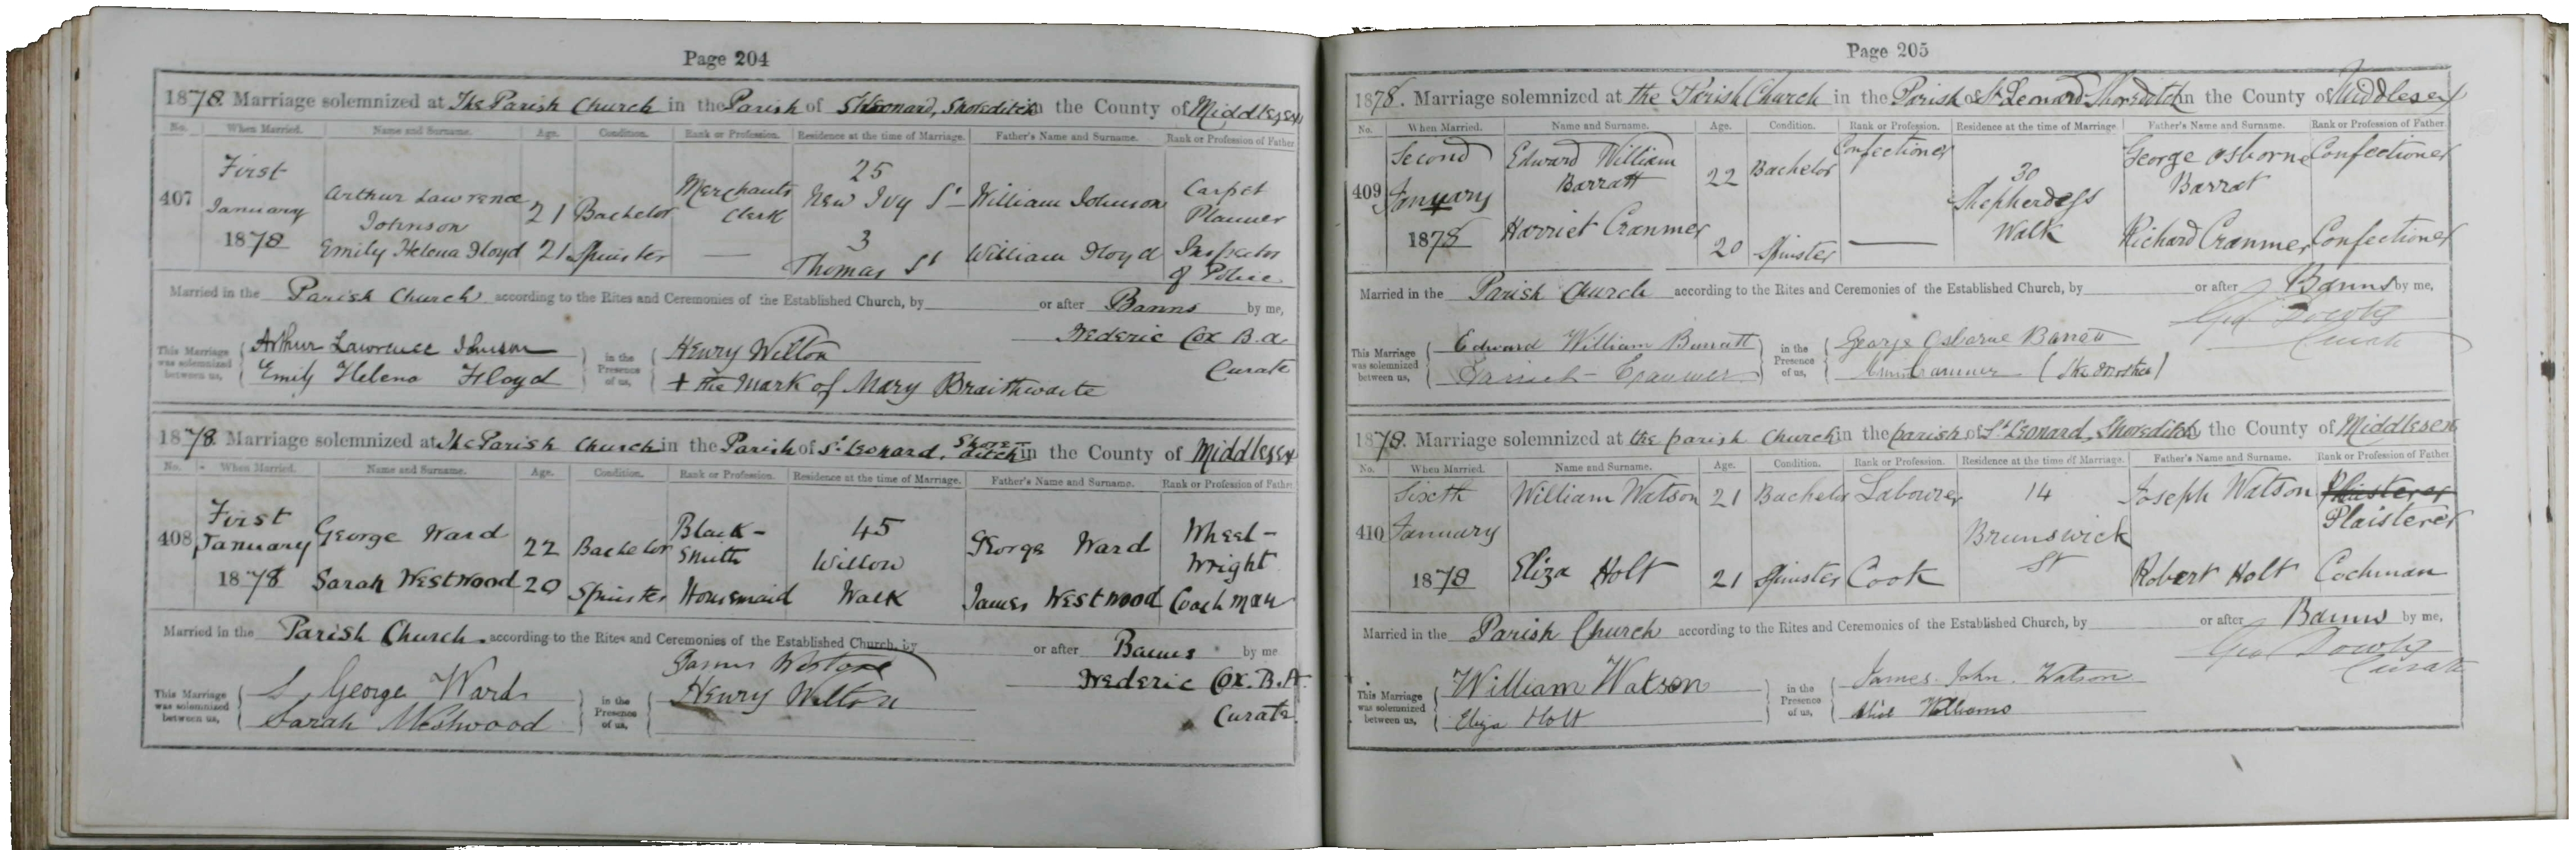 Page 204
1878. Marriage solemnized at The Parish Church in the Parish of St Leonard, Shoreditch in the County of Middlesex
No. When Married. Name and Surname. Age. Condition. Rank or Profession. Residence at the time of Marriage. Father's Name and Surname. Rank or Profession of Father.
407
First
January
1878
Arthur Lawrence
Johnson
21 Bachelor
Merchants
Clerk
25
New Ivy St
William Johnson
Carpet
Planner
Emily Helena Floyd 21 Spinster —
3
Thomas St
William Floyd
Inspector
of Police
Married in the Parish Church according to the Rites and Ceremonies of the Established Church, by or after Banns by me,
Frederic Cox B.A.
Curate
This Marriage was solemnized between us,
Arthur Lawrence Johnson
Emily Helena Floyd
in the Presence of us,
Henry Welton
+ the mark of Mary Braithwaite
1878. Marriage solemnized at The Parish Church in the Parish of St Leonard, Shoreditch in the County of Middlesex
No. When Married. Name and Surname. Age. Condition. Rank or Profession. Residence at the time of Marriage. Father's Name and Surname. Rank or Profession of Father.
408
First
January
1878
George Ward 22 Bachelor
Black-
Smith
45
Willow
Walk
George Ward
Wheel-
wright
Sarah Westwood 20 Spinster Housemaid
James Westwood Coachman
Married in the Parish Church. according to the Rites and Ceremonies of the Established Church, by or after Banns by me
Frederic Cox. B.A.
Curate.
This Marriage was solemnized between us,
George Ward
Sarah Westwood
in the Presence of us,
James
Henry Welton
Page 205
1878. Marriage solemnized at the Parish Church in the Parish of St Leonard Shoreditch in the County of Middlesex
No. When Married. Name and Surname. Age. Condition. Rank or Profession. Residence at the time of Marriage. Father's Name and Surname. Rank or Profession of Father.
409
Second
January
1878
Edward William
Barratt
22 Bachelor Confectioner
30
Shepherdess
Walk
George Osborne
Barrat
Confectioner
Harriet Cranmer 20 Spinster — Richard Cranmer Confectioner
Married in the Parish Church according to the Rites and Ceremonies of the Established Church, by or after Banns by me,
Geo
Curate
This Marriage was solemnized between us,
Edward William Barratt
Harriet Cranmer
in the Presence of us,
George Osborne Barratt
Cranmer (the mother)
1878. Marriage solemnized at the parish Church in the parish of St Leonard, Shoreditch the County of Middlesex
No. When Married. Name and Surname. Age. Condition. Rank or Profession. Residence at the time of Marriage. Father's Name and Surname. Rank or Profession of Father.
410
Sixth
January
1878
William Watson 21 Bachelor Labourer
14
Brunswick
St
Joseph Watson
Plaisterer
Eliza Holt 21 Spinster Cook Robert Holt Cochman
Married in the Parish Church according to the Rites and Ceremonies of the Established Church, by or after Banns by me,
Geo
Curate
This Marriage was solemnized between us,
William Watson
Eliza Holt
in the Presence of us,
James John Watson
Williams